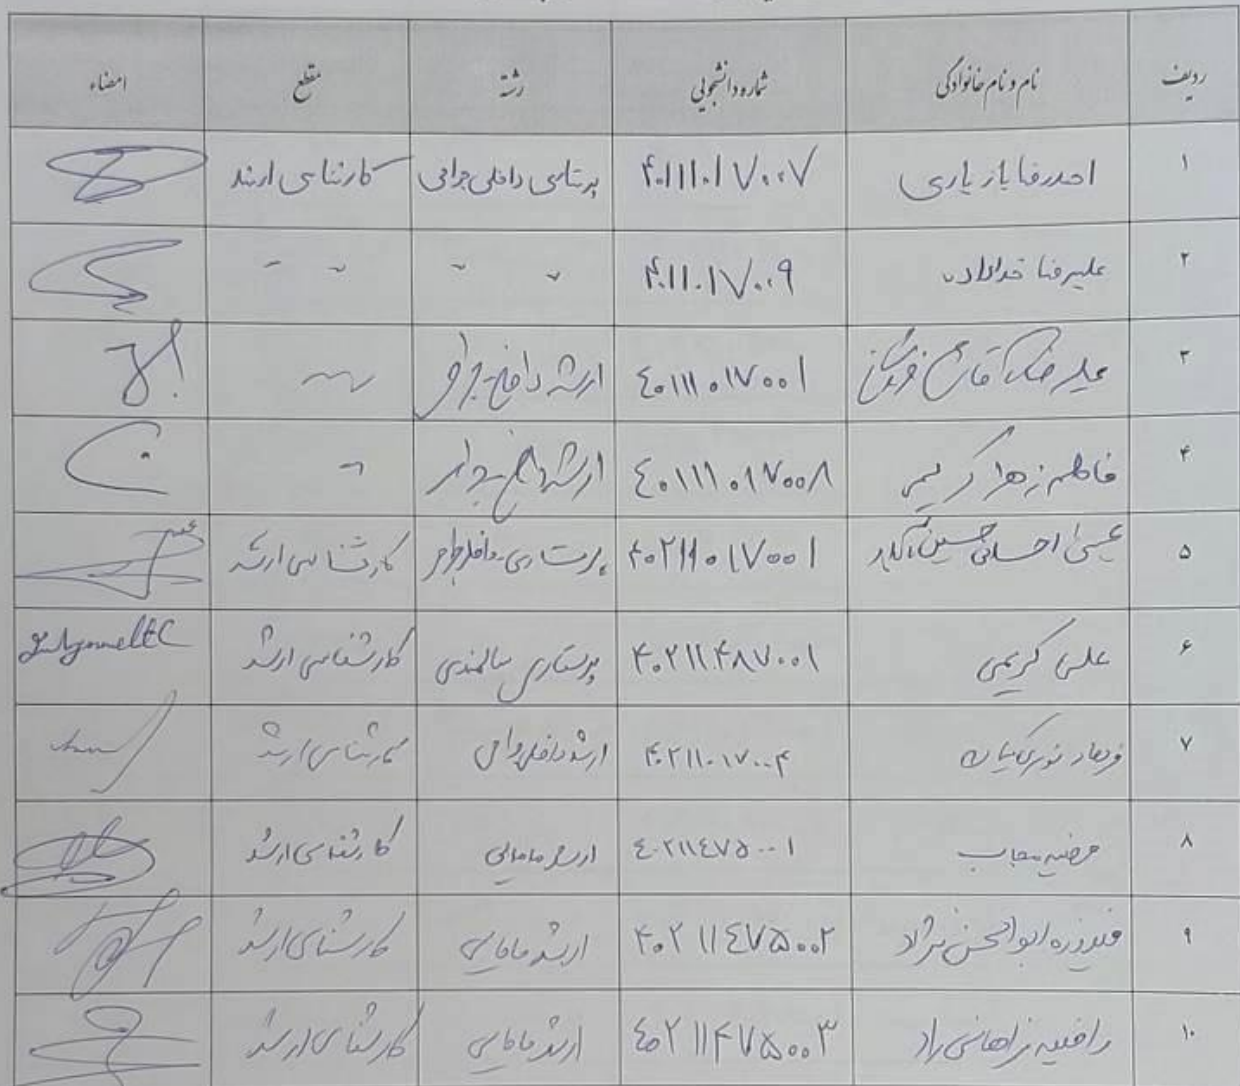 ردیف نام و نام خانوادگی شماره دانشجویی رشته مقطع امضاء
۱ احمدرضا بازیاری ۴۰۱۱۱۰۱۷۰۰۷ پرستاری داخلی جراحی کارشناسی ارشد
۲ علیرضا خداداده ۴۰۱۱۱۰۱۷۰۰۹ 〃 〃 〃 〃
۳ علیرضا ۴۰۱۱۱۰۱۷۰۰۱ ارشد داخلی جراحی 〃
۴ فاطمه زهرا کریمی ۴۰۱۱۱۰۱۷۰۰۸ ارشد داخلی جراحی 〃
۵ ۴۰۲۱۱۰۱۷۰۰۱ پرستاری داخلی جراحی کارشناسی ارشد
۶ علی کریمی ۴۰۲۱۱۴۸۷۰۰۱ پرستاری سالمندی کارشناسی ارشد
۷ فرهاد نوری کیان ۴۰۲۱۱۰۱۷۰۰۴ ارشد داخلی جراحی کارشناسی ارشد
۸ مرضیه مجاب ۴۰۲۱۱۴۷۵۰۰۱ ارشد مامایی کارشناسی ارشد
۹ فیروزه ابوالحسن نژاد ۴۰۲۱۱۴۷۵۰۰۲ ارشد مامایی کارشناسی ارشد
۱۰ راضیه زاهانی راد ۴۰۲۱۱۴۷۵۰۰۳ ارشد مامایی کارشناسی ارشد